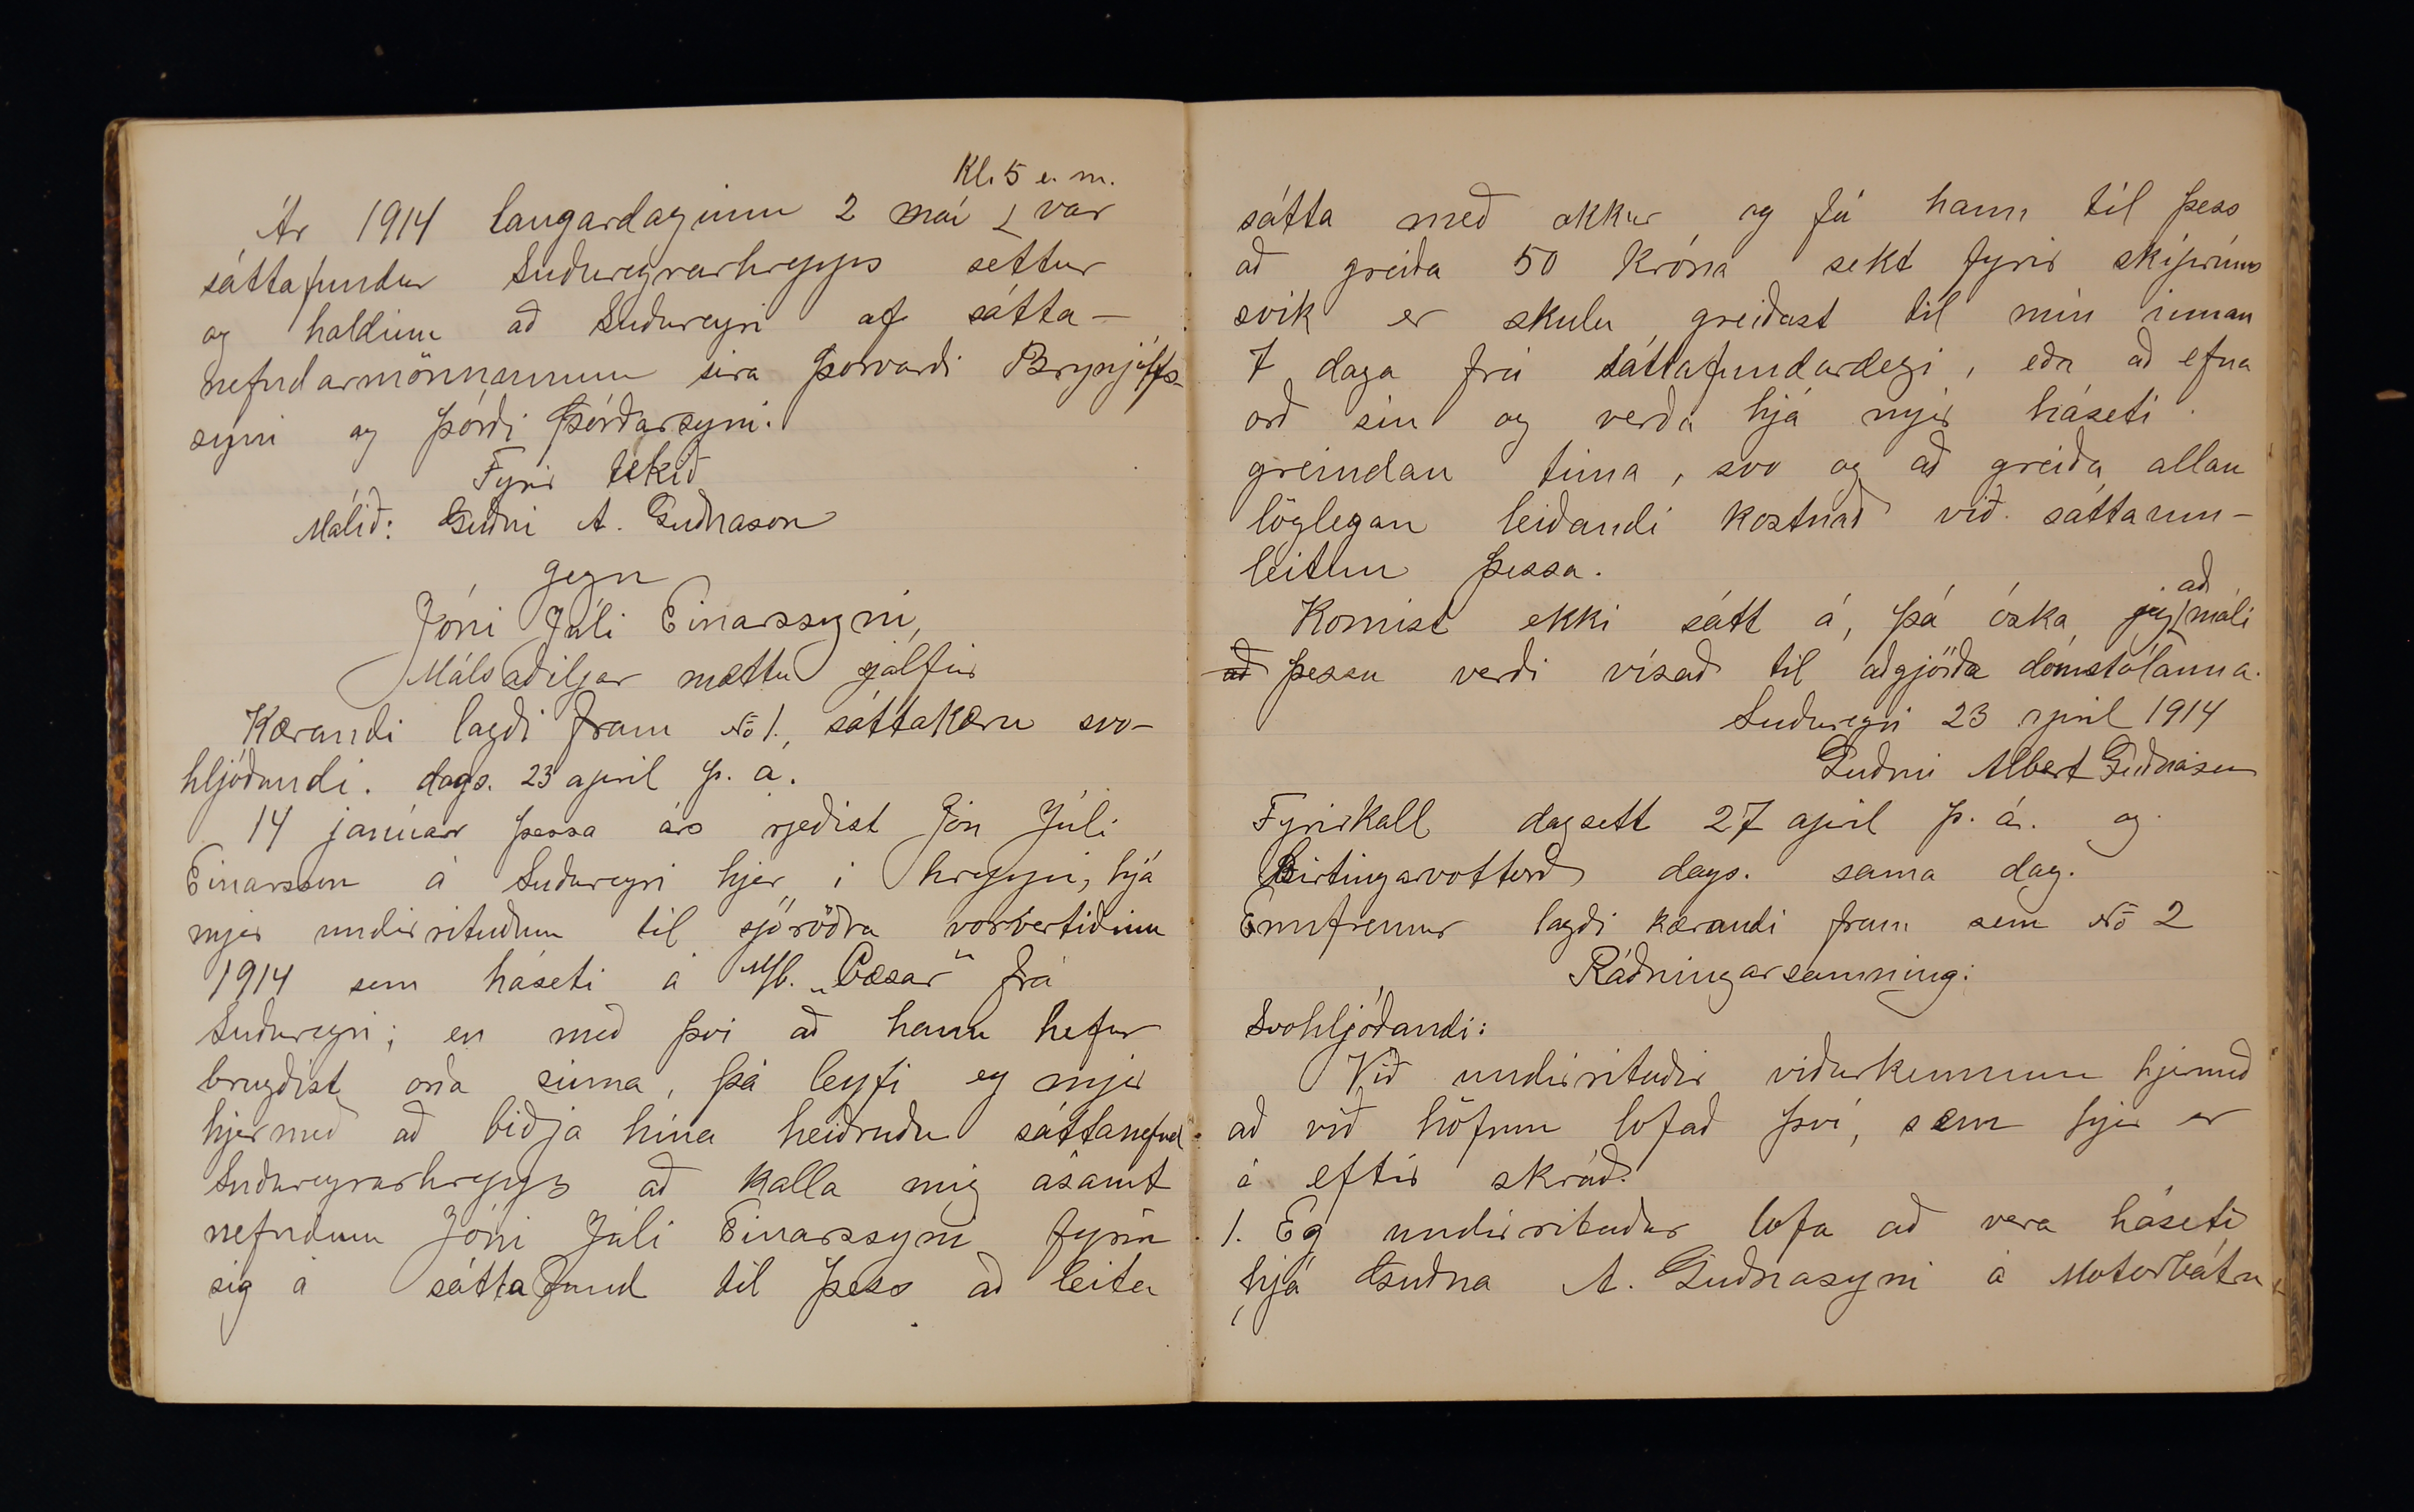 Kl. 5 e. m.
Ár 1914 laugardaginn 2 maí var
sáttafundur Suðureyrarhrepps settur
og haldinn að Suðureyri af sátta-
nefndarmönnunum síra Þorvarði Brynjólfs-
syni og Þórði Þórðarsyni.
Fyrir tekið
Málið: Guðni A. Guðnason
gegn
Jóni Júlí Einarssyni,
Málsaðiljar mættu sjálfir
Kærandi lagði fram No 1., sáttakæru svo-
hljóðandi. dags. 23 apríl þ. á.
14 janúar þessa árs rjeðist Jón Júlí
Einarsson á Suðureyri hjer í hreppi, hjá
mjer undirrituðum til sjóróðra vorvertíðina
1914 sem háseti á M/b. „Cæsar“ frá
Suðureyri; en með því að hann hefur
brugðist orða sinna, þá leyfi eg mjer
hjermeð að biðja hina heiðruðu sáttanefnd
Suðureyrarhrepps að kalla mig ásamt
nefndum Jóni Júlí Einarssyni fyrir
sig á sáttafund til þess að leita
sátta með okkur og fá hann til þess
að greiða 50 króna sekt fyrir skiprúms
svik er skulu greiðast til mín innan
7 daga frá sáttafundardegi, eða að efna
orð sín og verða hjá mjer háseti
greindan tíma, svo og að greiða allan
löglegan leiðandi kostnað við sáttaum-
leitun þessa.
Komist ekki sátt á, þá óska jeg að máli
að þessu verði vísað til aðgjörða dómstólanna.
Suðureyri 23 apríl 1914
Guðni Albert Guðnason
Fyrirkall dagsett 27 apríl þ. á. og
Birtingarvottorð dags. sama dag.
Ennfremur lagði kærandi fram sem No 2
Ráðningarsamning:
Svohljóðandi:
Við undirritaðir viðurkennum hjermeð
að við höfum lofað því, sem hjer er
á eftir skráð:
1. Eg undirritaður lofa að vera háseti
hjá Guðna A. Guðnasyni á Motorbátn